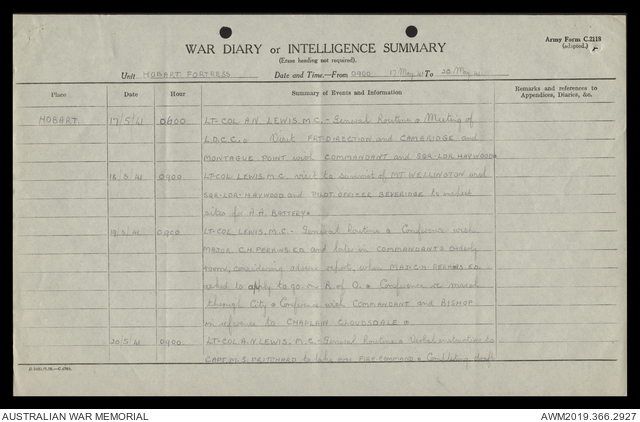 Army Form C.2118
(adapted.)
WAR DIARY or INTELLIGENCE SUMMARY
(Erase heading not required).
Unit HOBART FORTRESS Date and Time.—From 0900 17 May 41 To 20 May 41
Place Date Hour Summary of Events and Information Remarks and references to Appendices, Diaries, &c.
HOBART 17/5/41 0600 LT-COL A.N. LEWIS. M.C. - General Routine. Meeting of
L.D.C.C. Visit FRT. DIRECTION and CAMBRIDGE and
MONTAGUE POINT with COMMANDANT and SQR-LDR HAYWOOD.
18/5/41 0900 LT-COL LEWIS. M.C. visit to summit of MT WELLINGTON with
SQR-LDR-HAYWOOD and PILOT OFFICER BEVERIDGE to inspect
sites for A.A. BATTERY.
19/5/41 0900 LT-COL LEWIS. M.C. - General Routine. Conference with
MAJOR C.H. PERKINS ED. and later in COMMANDANTS orderly
room, considering adverse report, when MAJ C.H. PERKINS ED.
asked to apply to go on R of O. Conference re march
through City. Conference with COMMANDANT and BISHOP
in reference to CHAPLAIN CLOUDSDALE.
20/5/41 0900 LT-COL A.N. LEWIS. M.C. - General Routine. Verbal instruction to
CAPT. M.S. PRITCHARD to take over FIRE COMMAND. Completing draft
AUSTRALIAN WAR MEMORIAL
AWM2019.366.2927